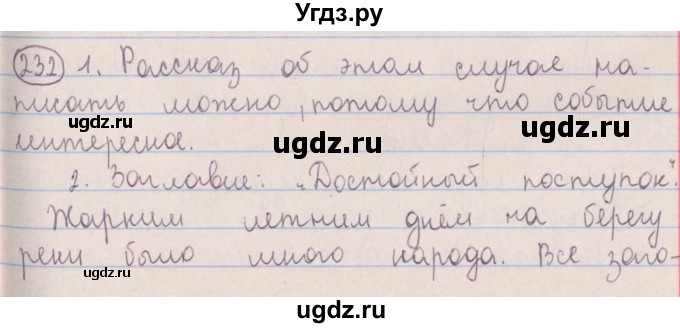 Угдз.ру
232 1. Рассказ об этом случае на-
писать можно, потому что событие
интересное.
ugdz.ru ugdz.ru ugdz.ru
2. Заглавие: "Достойный поступок".
Жарким летним днём на берегу
ugdz.ru ugdz.ru
реки было много народа. Все заго-
ugdz.ru ugdz.ru
ugdz.ru